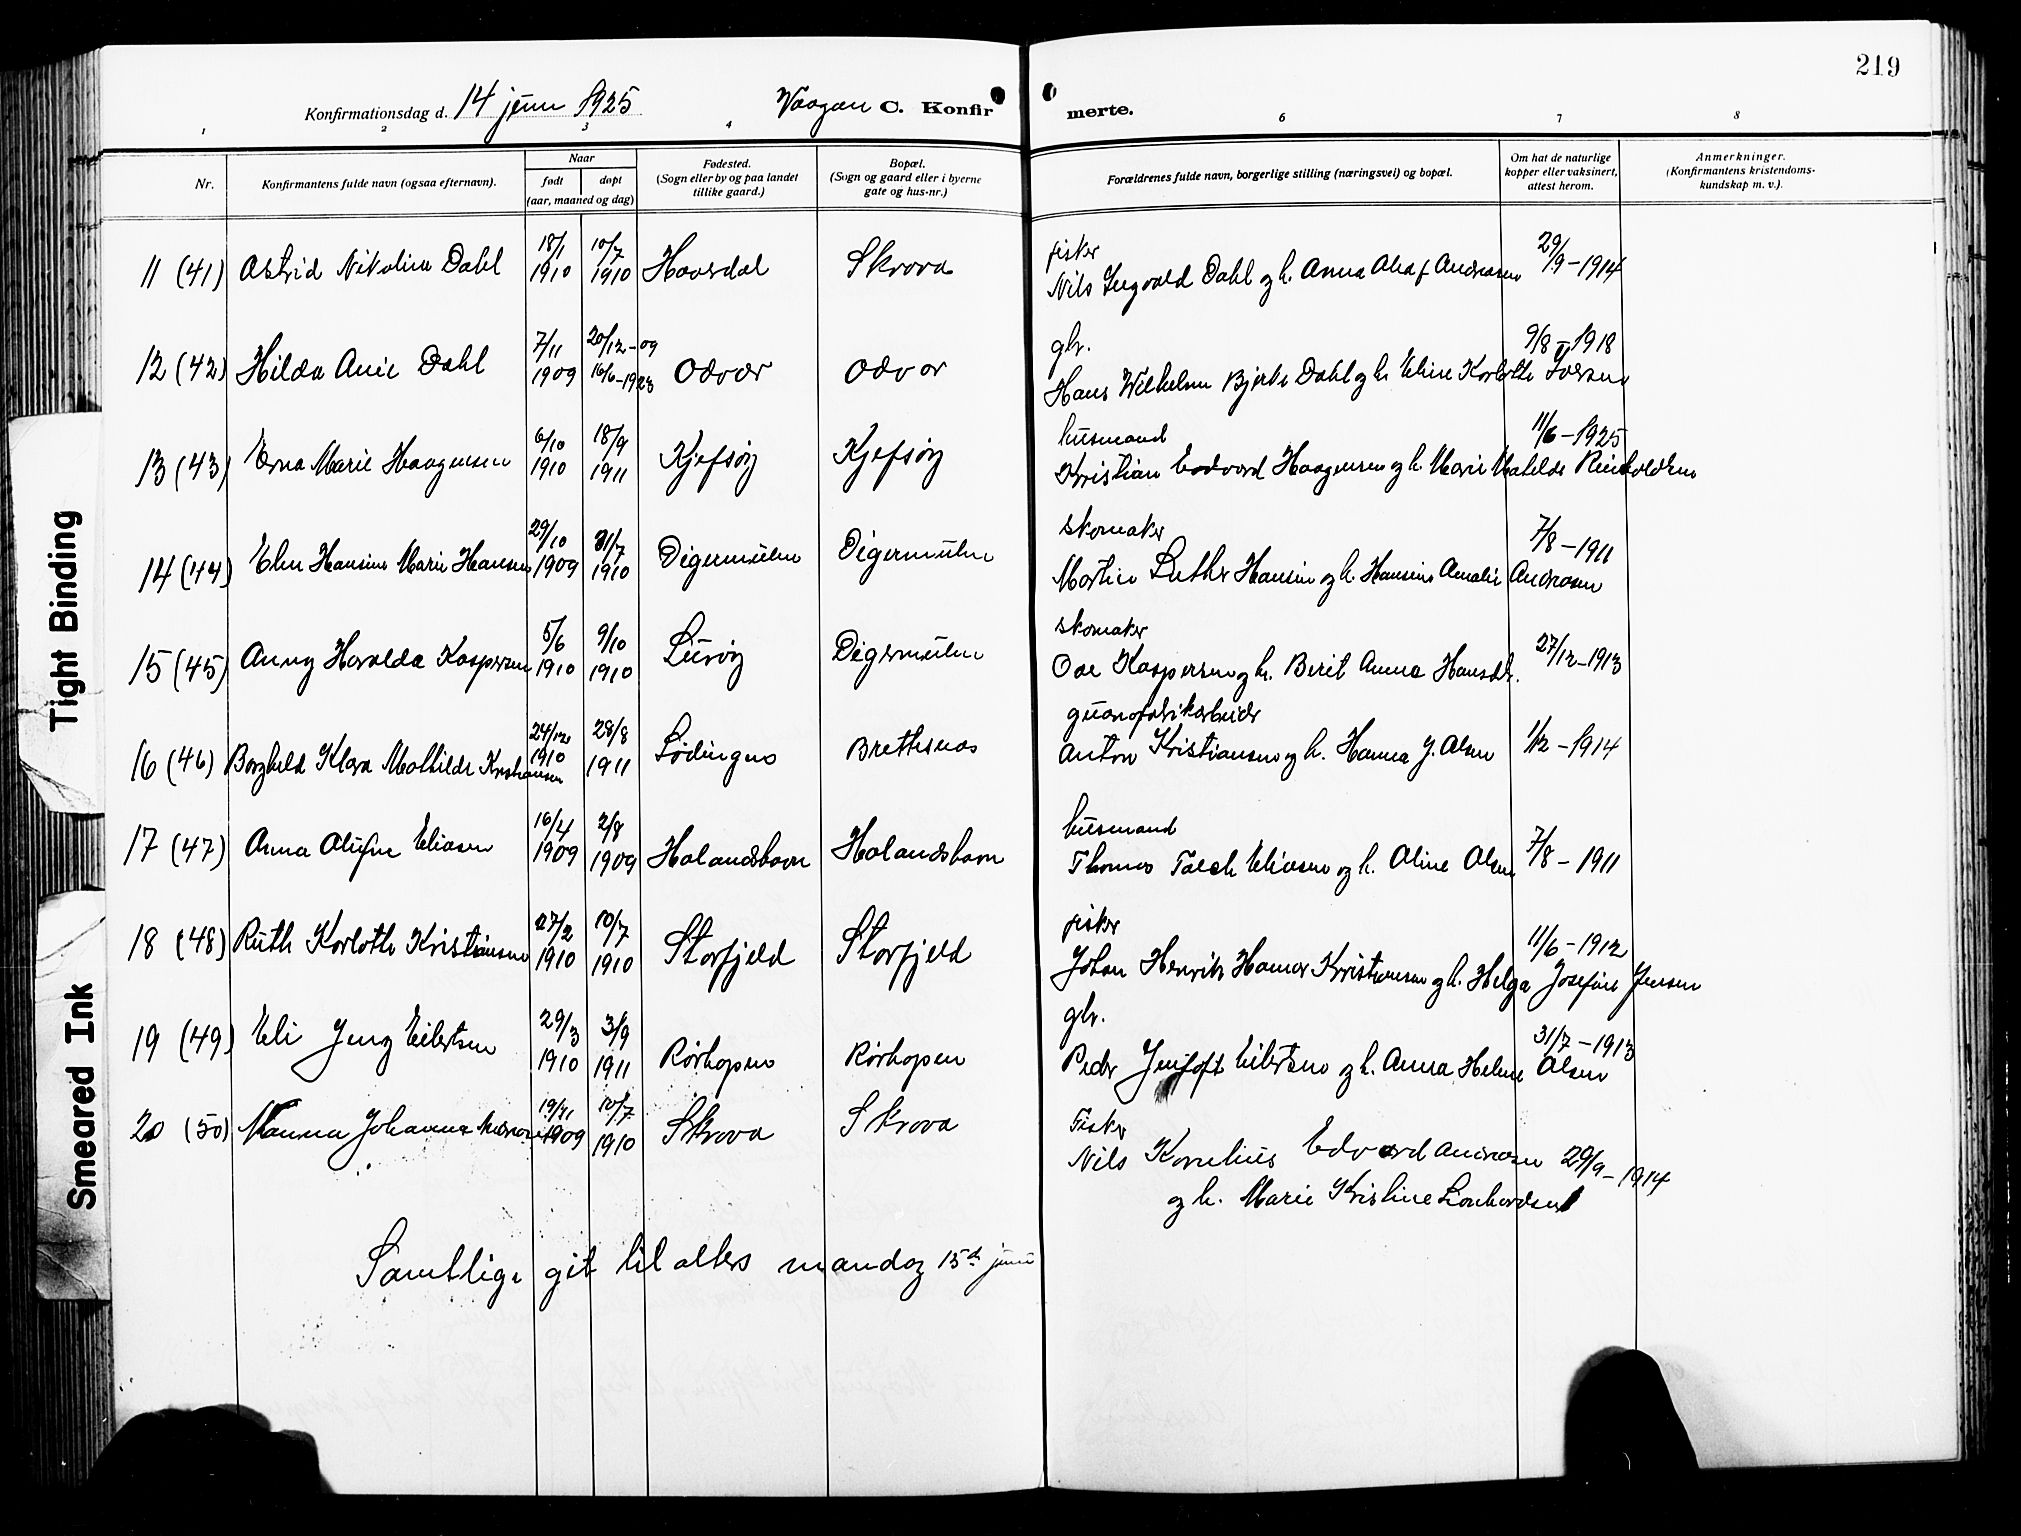 219
Konfirmationsdag d. 14 juni 1925 Vaagan C. Konfirmerte.
1 2 3 4 6 7 8
Nr.
Konfirmantens fulde navn (ogsaa efternavn).
Naar
født døpt
(aar, maaned og dag)
Fødested.
(Sogn eller by og paa landet
tillike gaard.)
Bopæl.
(Sogn og gaard eller i byerne
gate og hus-nr.)
Forældrenes fulde navn, borgerlige stilling (næringsvei) og bopæl.
Om hat de naturlige
kopper eller vaksinert,
attest herom.
Anmerkninger.
(Konfirmantens kristendoms-
kundskap m. v.).
fisker
11 (41) Astrid Nikoline Dahl 18/1 1910 10/7 1910 Haversdal Skrova Nils Ingvald Dahl og h. Anna Andreasen 29/9-1914
gbr.
12 (42) Hilda Anie Dahl 7/11 1909 20/12-09 16/6-1923 Odvær Odvær Hans Wilhelm Bjerke Dahl og h. Eline Karlotte Iversen 9/8-1918
husmand
13 (43) Erna Marie Haagensen 6/10 1910 18/9 1911 Kjefsøy Kjefsøy Kristian Edvard Haagensen og h. Marie Matilde Reinholdsen 11/6-1925
skomaker
14 (44) Elen Hansine Marie Hansen 29/10 1909 31/7 1910 Digermulen Digermulen Martin Luther Hansen og h. Hansine Amalie Andreasen 7/8-1911
skomaker
15 (45) Anny Haralda Kaspersen 5/6 1910 9/10 1910 Lurøy Digermulen Ole Kaspersen og h. Berit Anna Hansdtr. 27/12-1913
guanofabrikarbeider
16 (46) Borghild Klara Mathilde Kristiansen 24/12 1910 28/8 1911 Lødingen Brettesnes Anton Kristiansen og h. Hanna J. Olsen 1/12-1914
husmand
17 (47) Anna Olufine Eliasen 16/4 1909 2/8 1909 Holandshavn Holandshavn Thomas Falch Eliasen og h. Oline Olsen 7/8-1911
fisker
18 (48) Ruth Karlotte Kristiansen 27/2 1910 10/7 1910 Storfjeld Storfjeld Johan Henrik Hamar Kristiansen og h. Helga Josefine Jensen 11/6-1912
gbr.
19 (49) Eli Jeny Eilertsen 29/3 1910 3/9 1911 Rørhopen Rørhopen Peder Jentoft Eilertsen og h. Anna Helene Olsen 31/7-1913
Fisker
20 (50) Nanna Johanna 19/11 1909 10/7 1910 Skrova Skrova Nils Kornelius Edvard Andreasen 29/9-1914
og h. Marie Kristine Leonhardsen
Samtlige git til alters mandag 15de juni
Tight Binding
Smeared Ink